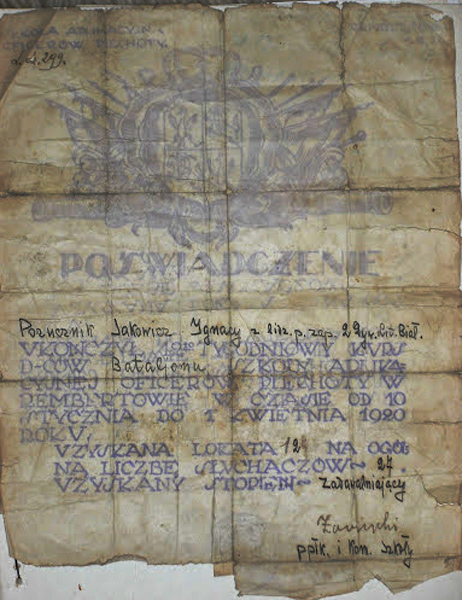 SZKOŁA APLIKACYJNA
OFICERÓW PIECHOTY.
L.d. 299.
POŚWIADCZENIE
Porucznik Jakowicz Ignacy z p. zap. 2 Dyw. Lit. Biał.
UKOŃCZYŁ TYGODNIOWY KURS
D-CÓW Bataljonu SZKOŁY APLIKA-
CYJNEJ OFICERÓW PIECHOTY W
REMBERTOWIE W CZASIE OD 10
STYCZNIA DO 1 KWIETNIA 1920
ROKU.
UZYSKANA LOKATA 12 NA OGÓŁ
NA LICZBĘ SŁUCHACZÓW ~ 27.
UZYSKANY STOPIEŃ ~ zadawalniający
ppłk. i Kom. Szkoły